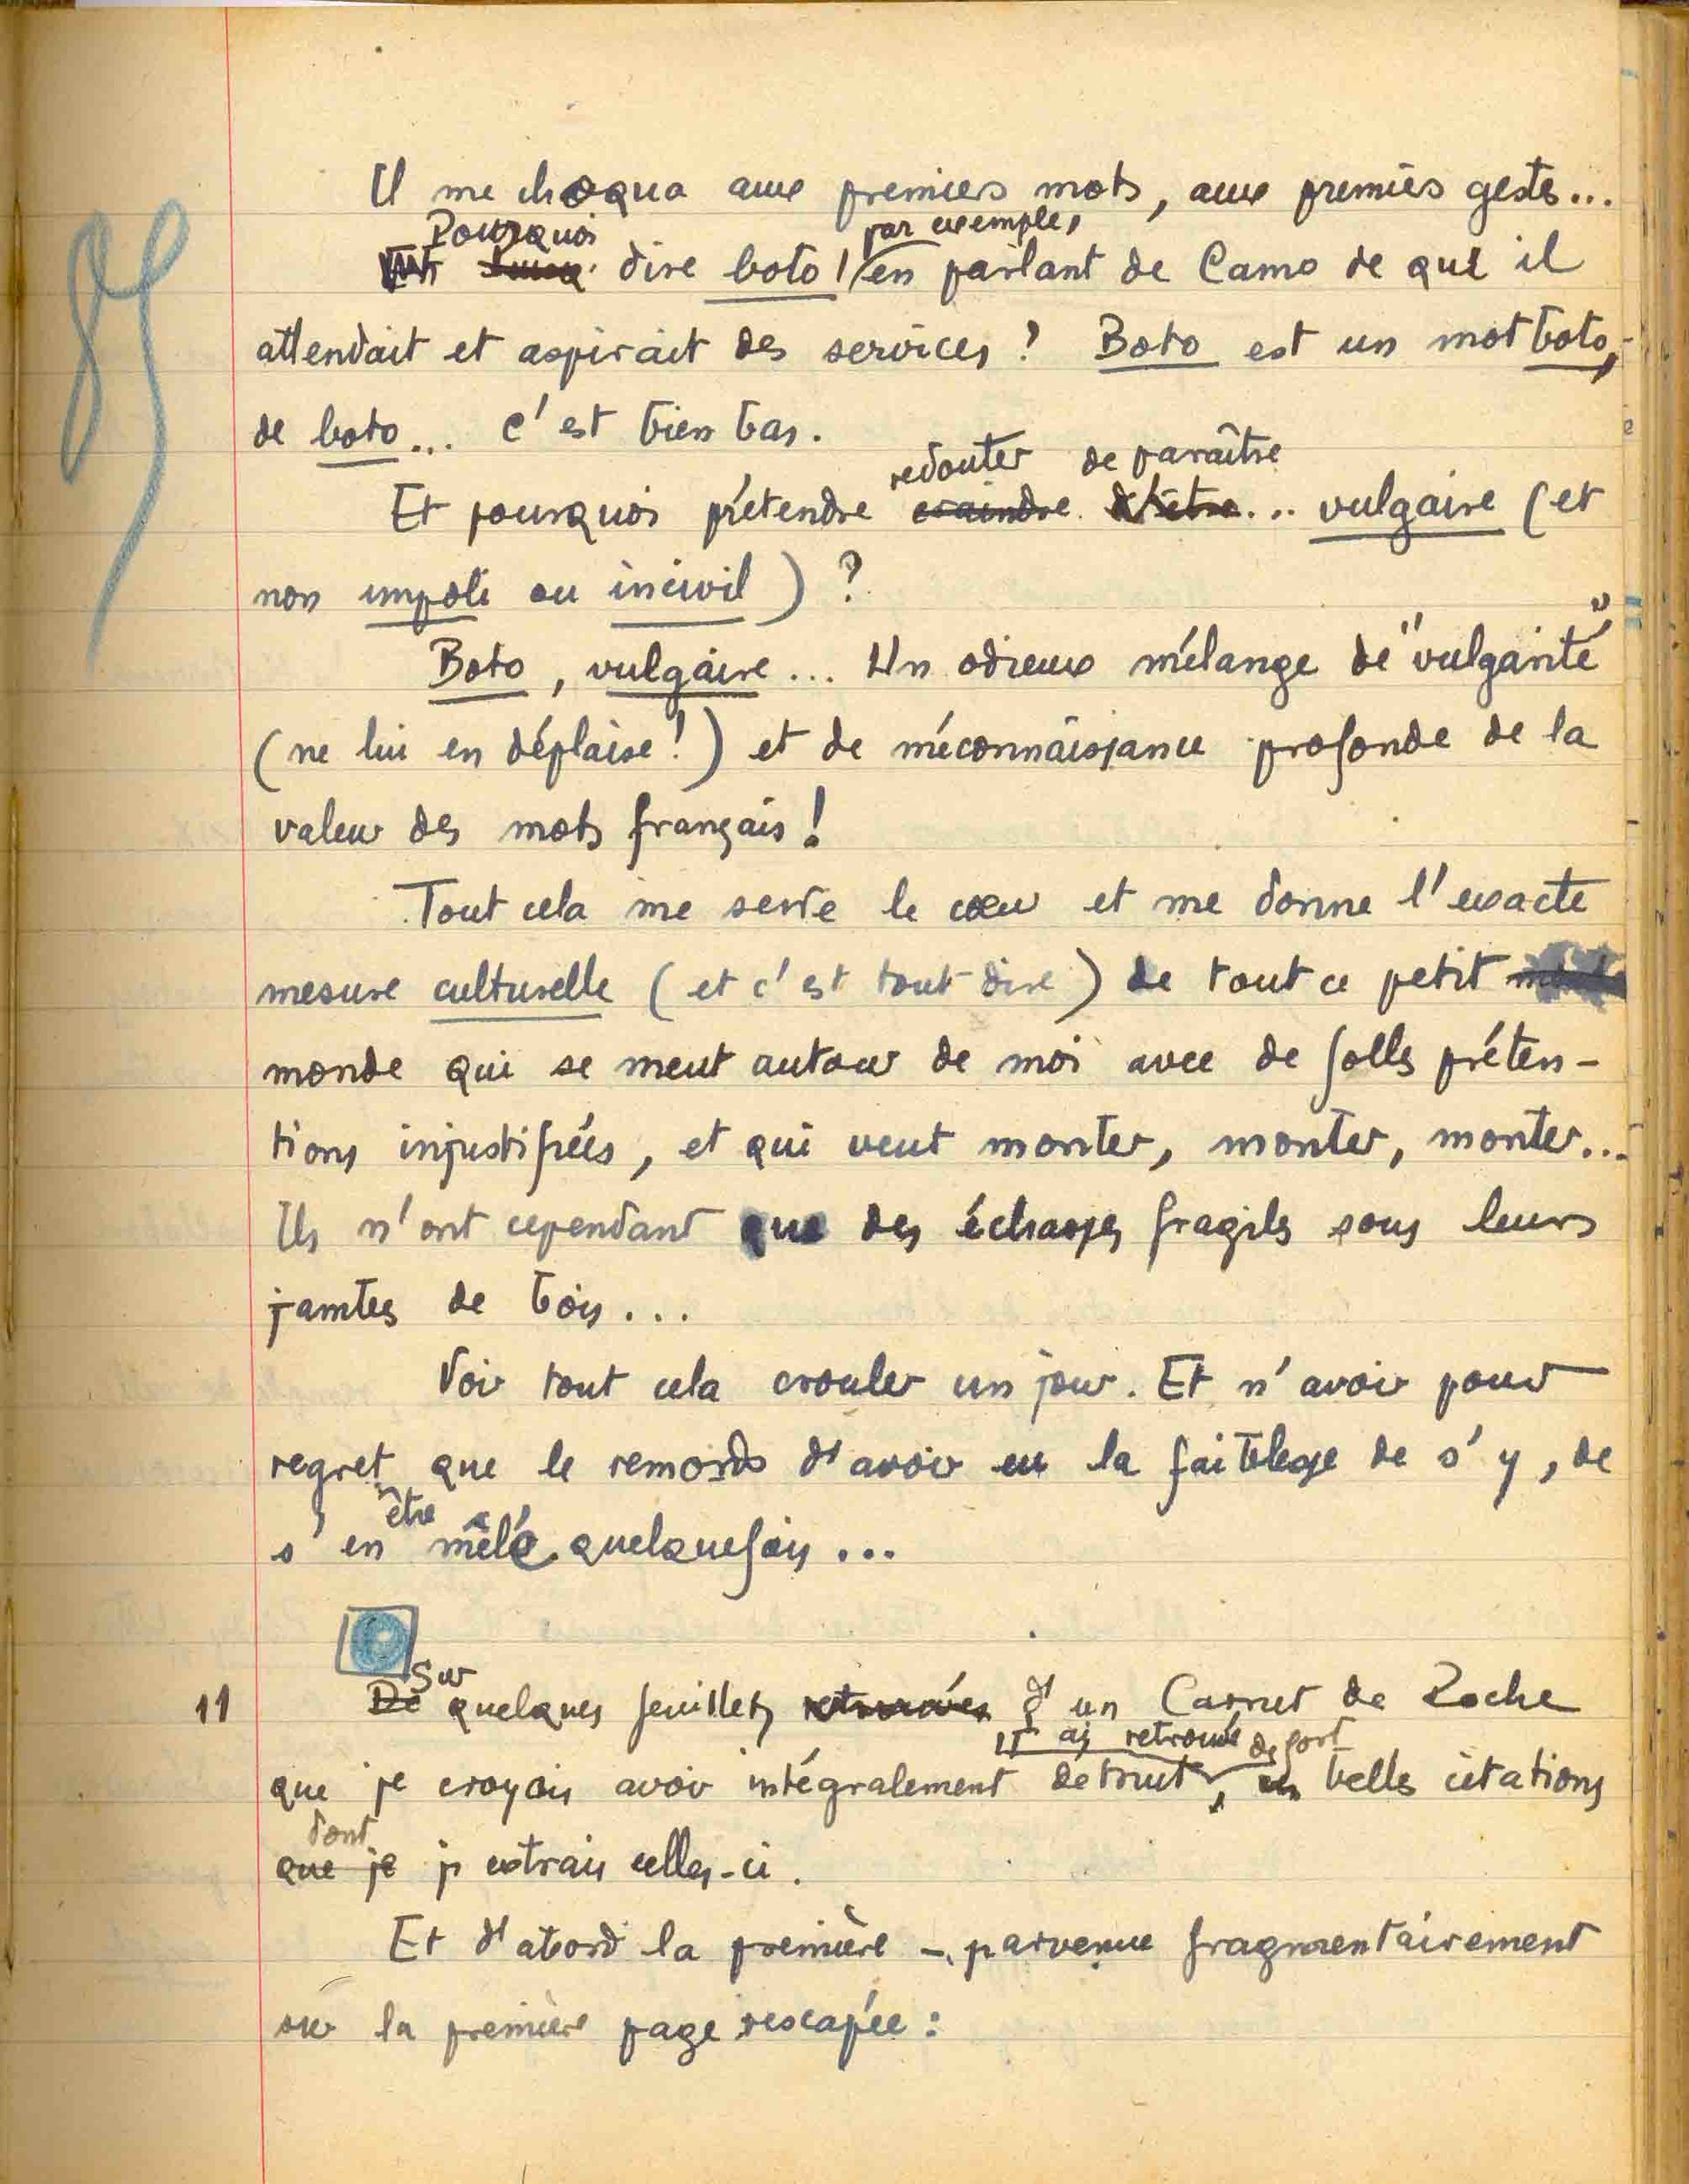 85
Il me choqua aux premiers mots, aux premiers gestes...
Pourquoi par exemple,
dire boto ! en parlant de Camo de qui il
attendait et aspirait des services ? Boto est un mot boto,
de boto... C'est bien bas.
redouter de paraître
Et pourquoi prétendre craindre d'être... vulgaire (et
non impoli ou incivil) ?
Boto, vulgaire... Un odieux mélange de "vulgarité"
(ne lui en déplaise !) et de méconnaissance profonde de la
valeur des mots français !
Tout cela me serre le cœur et me donne l'exacte
mesure culturelle (et c'est tout dire) de tout ce petit
monde qui se meut autour de moi avec de folles préten-
tions injustifiées, et qui veut monter, monter, monter...
Ils n'ont cependant que des échasses fragiles sous leurs
jambes de bois...
Voir tout cela crouler un jour. Et n'avoir pour
regret que le remords d'avoir eu la faiblesse de s'y, de
être
s'en mêlé quelquefois...
Sur
11 De quelques feuillets retrouvés d'un Carnet de Poche
ai retrouvé de fort
que je croyais avoir intégralement détruit, belles citations
dont
que je j'extrais celles-ci.
Et d'abord la première -, parvenue fragmentairement
sur la première page rescapée :